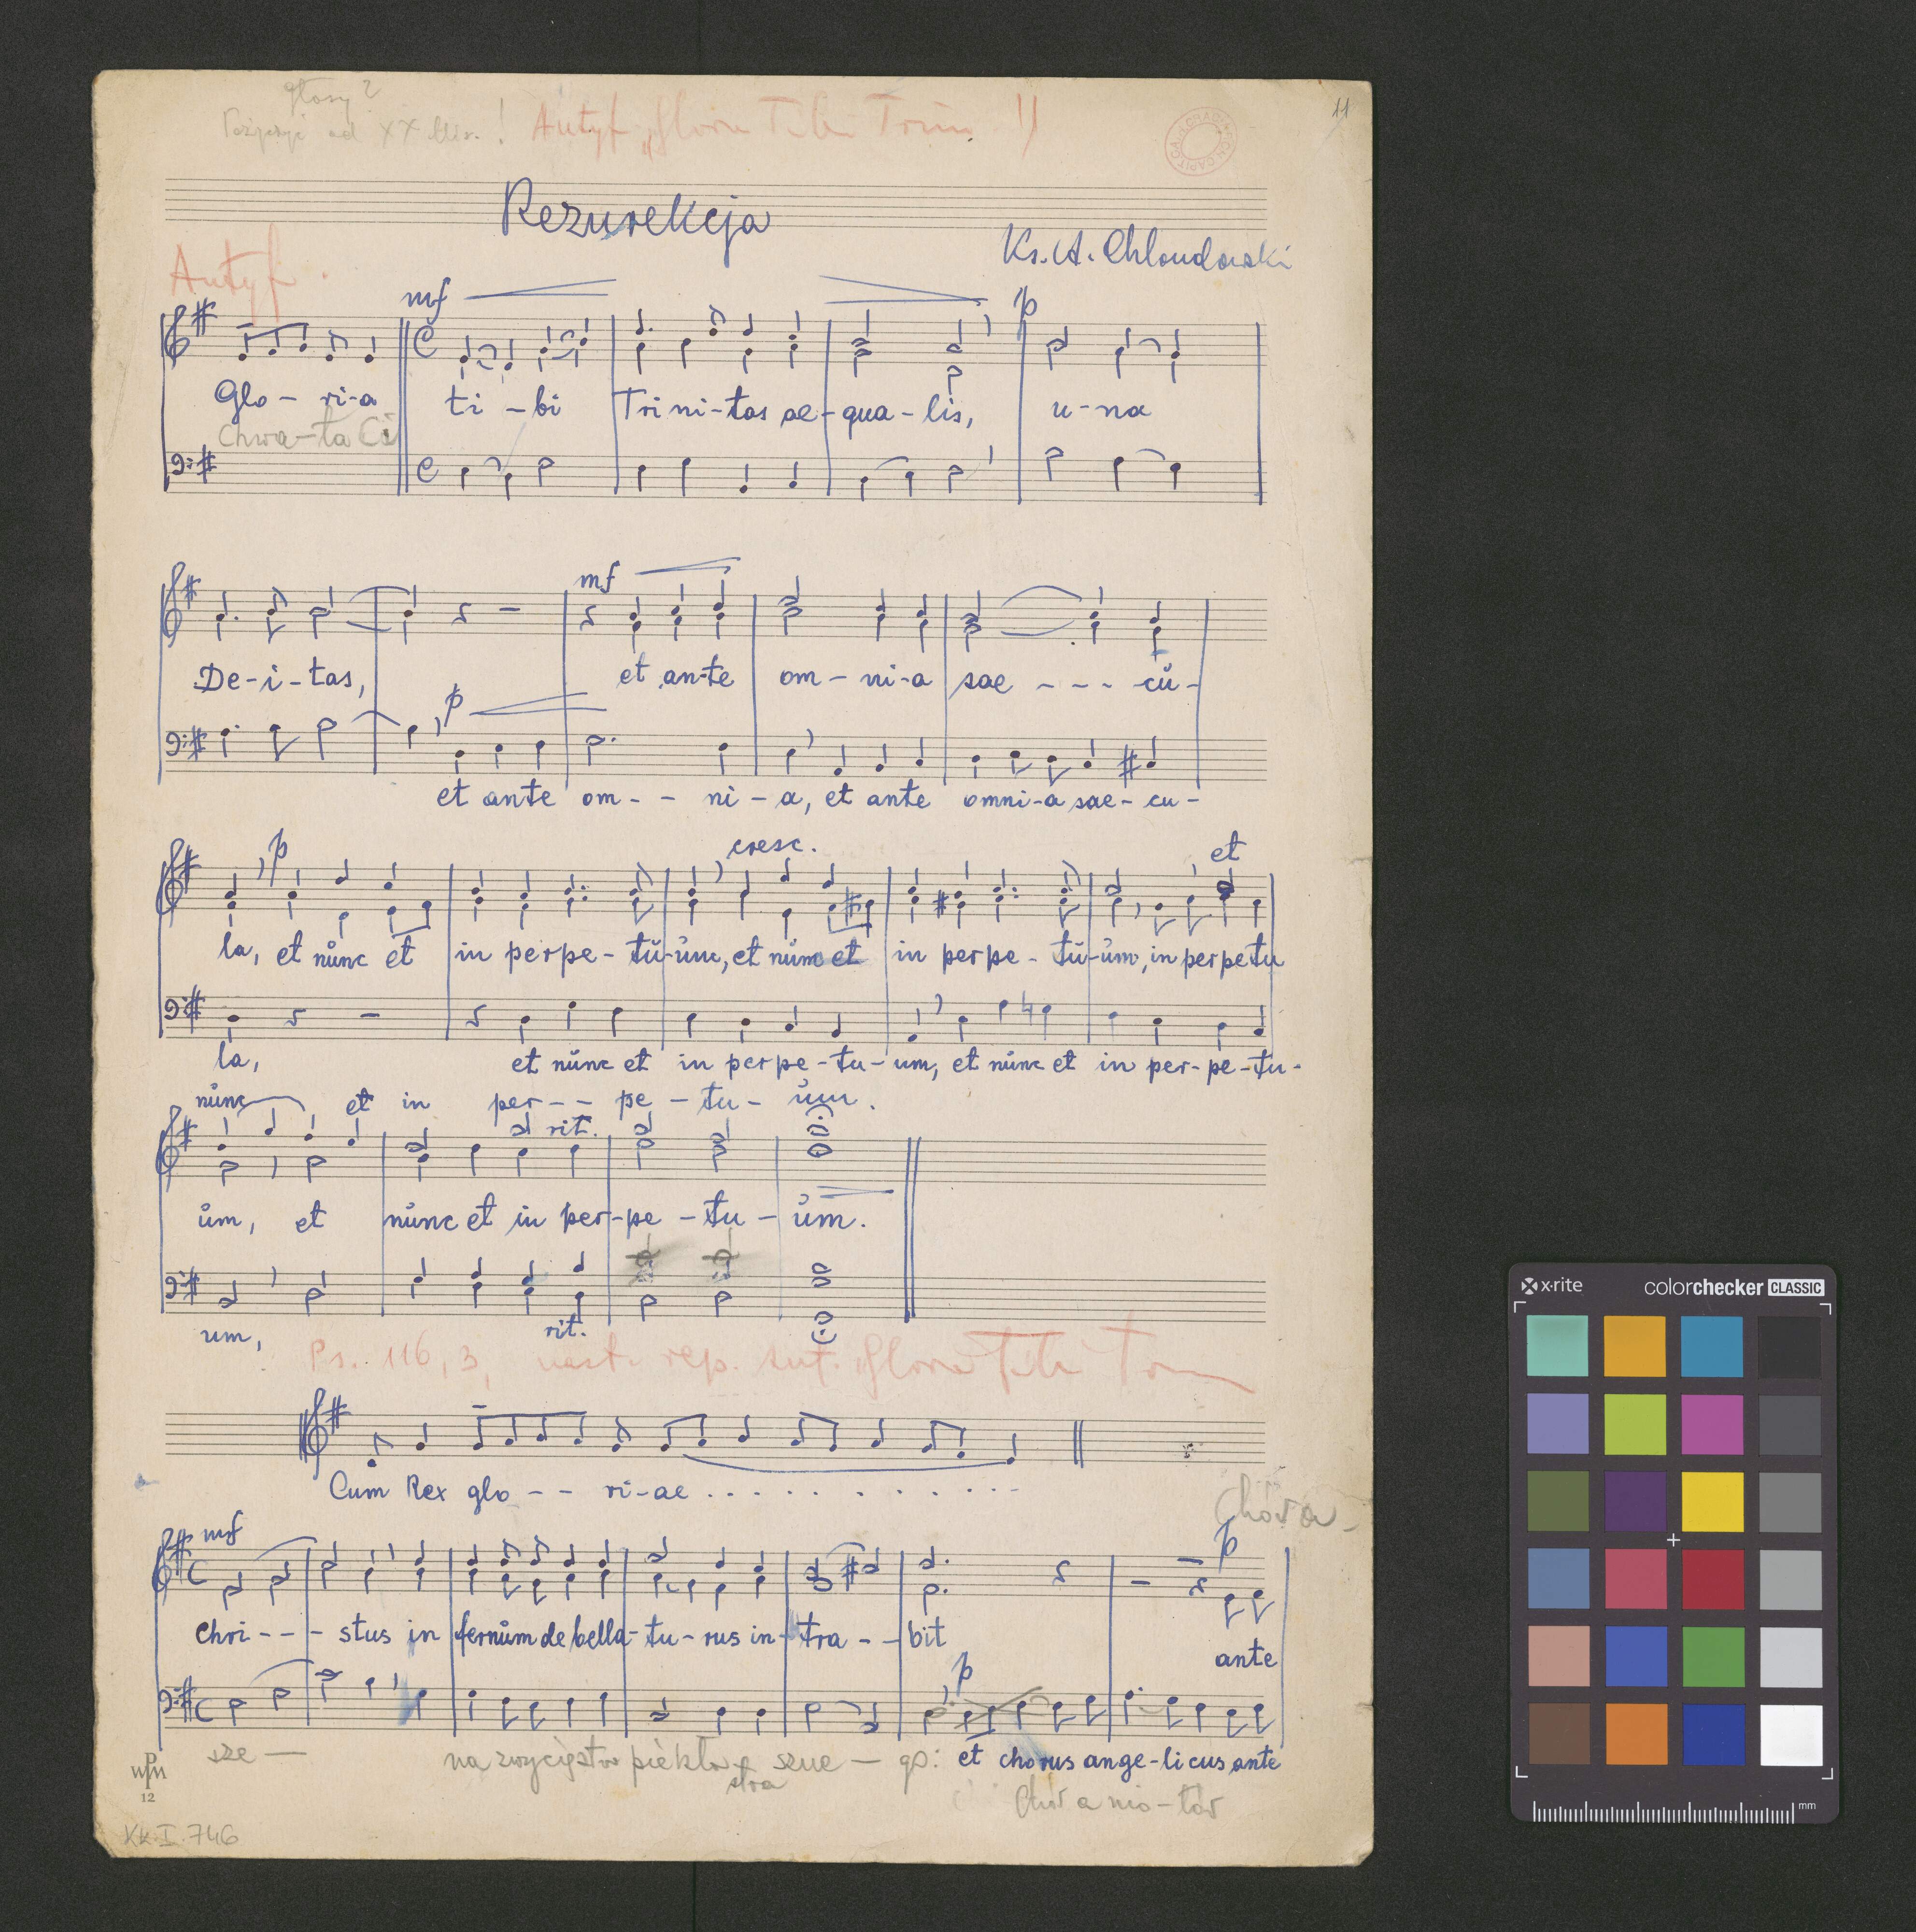 głosy?
od XX !
Antyf „Gloria Tibi Trin !!
11
Rezurekcja
Ks. A. Chlondowski
Antyf.
mf
p
Glo - ri-a ti - bi Tri ni-tas ae-qua-lis, u-na
Chwa-ła Ci
mf
De-i-tas, et an-te om-ni-a sae - - - cŭ-
p
et ante om - - ni-a, et ante omni-a sae-cu-
p cresc. et
la, et nŭnc et in perpe-tŭ-ŭm, et nŭnc et in perpe-tŭ-ŭm, in perpetu
la, et nŭnc et in perpe-tu-um, et nŭnc et in per-pe-tu-
nŭnc et in per - - pe-tu-ŭm.
rit.
ŭm, et nŭnc et in per-pe-tu-ŭm.
um, rit.
Ps. 116, 3, nast. rep. ant. Gloria Tibi Trin
Cum Rex glo - - ri-ae . . . . . . . . . .
mf
p
Chri - - - stus in fernŭm de bella-tu-rus in-tra - - bit ante
p
sze — na zwycięstwo piekła szne — go: et chorus ange-li cus ante
stra
Chór a nio-łów
PWM
12
KK.I.746
x·rite colorchecker CLASSIC
mm